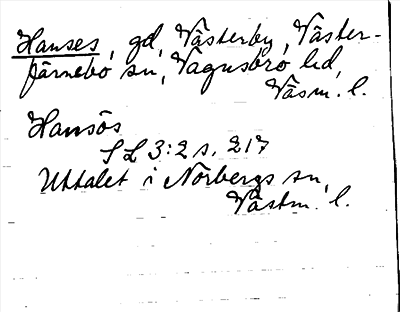 Hanses, gd, Västerby, Väster-
färnebo sn, Vagnsbro hd,
Väsm. l.
Hansös
SL 3:2 s. 217
Uttalet i Norbergs sn,
Västm. l.